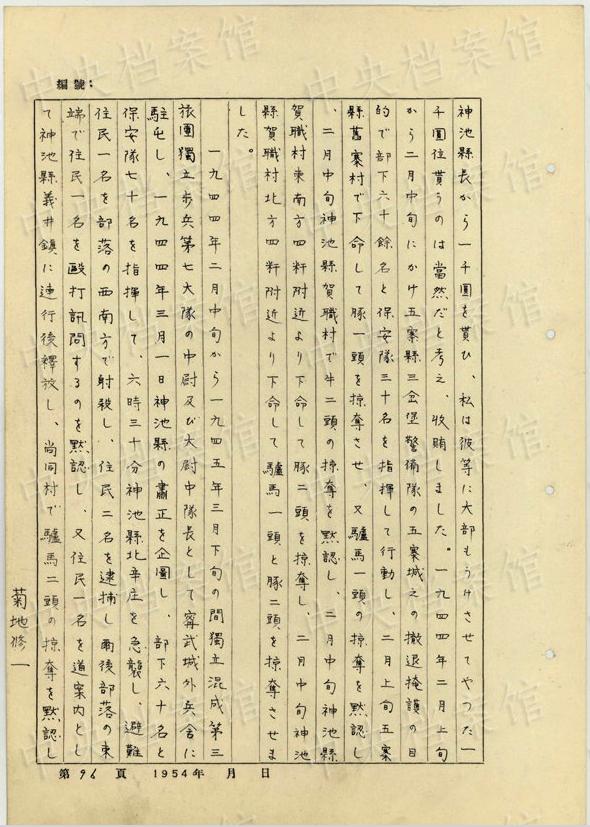 編號:
神池縣長から一千圓を貰ひ、私は彼等に大部もうけさせてやつた一
千圓位貰うのは當然だと考え、收賄しました。一九四四年二月上旬
から二月中旬にかけ五寨縣三岔堡警備隊の五寨城えの撤退掩護の目
的で部下六十餘名と保安隊三十名を指揮して行動し、二月上旬五寨
縣舊寨村で下命して豚一頭を掠奪させ、又驢馬一頭の掠奪を默認し
、二月中旬神池縣賀職村で牛二頭の掠奪を默認し、二月中旬神池縣
賀職村東南方四粁附近より下命して豚二頭を掠奪し、二月中旬神池
縣賀職村北方四粁附近より下命して驢馬一頭と豚二頭を掠奪させま
した。
一九四四年二月中旬から一九四五年三月下旬の間獨立混成第三
旅團獨立步兵第七大隊の中尉及び大尉中隊長として寧武城外兵舍に
駐屯し、一九四四年三月一日神池縣の肅正を企圖し、部下六十名と
保安隊七十名を指揮して、六時三十分神池縣北辛庄を急襲し、避難
住民一名を部落の西南方で射殺し、住民二名を逮捕し爾後部落の東
端で住民一名を毆打訊問するのを默認し、又住民一名を道案內とし
て神池縣義井鎮に連行後釋放し、尚同村で驢馬二頭の掠奪を默認し
菊地修一
第96頁 1954年 月 日
中央档案馆